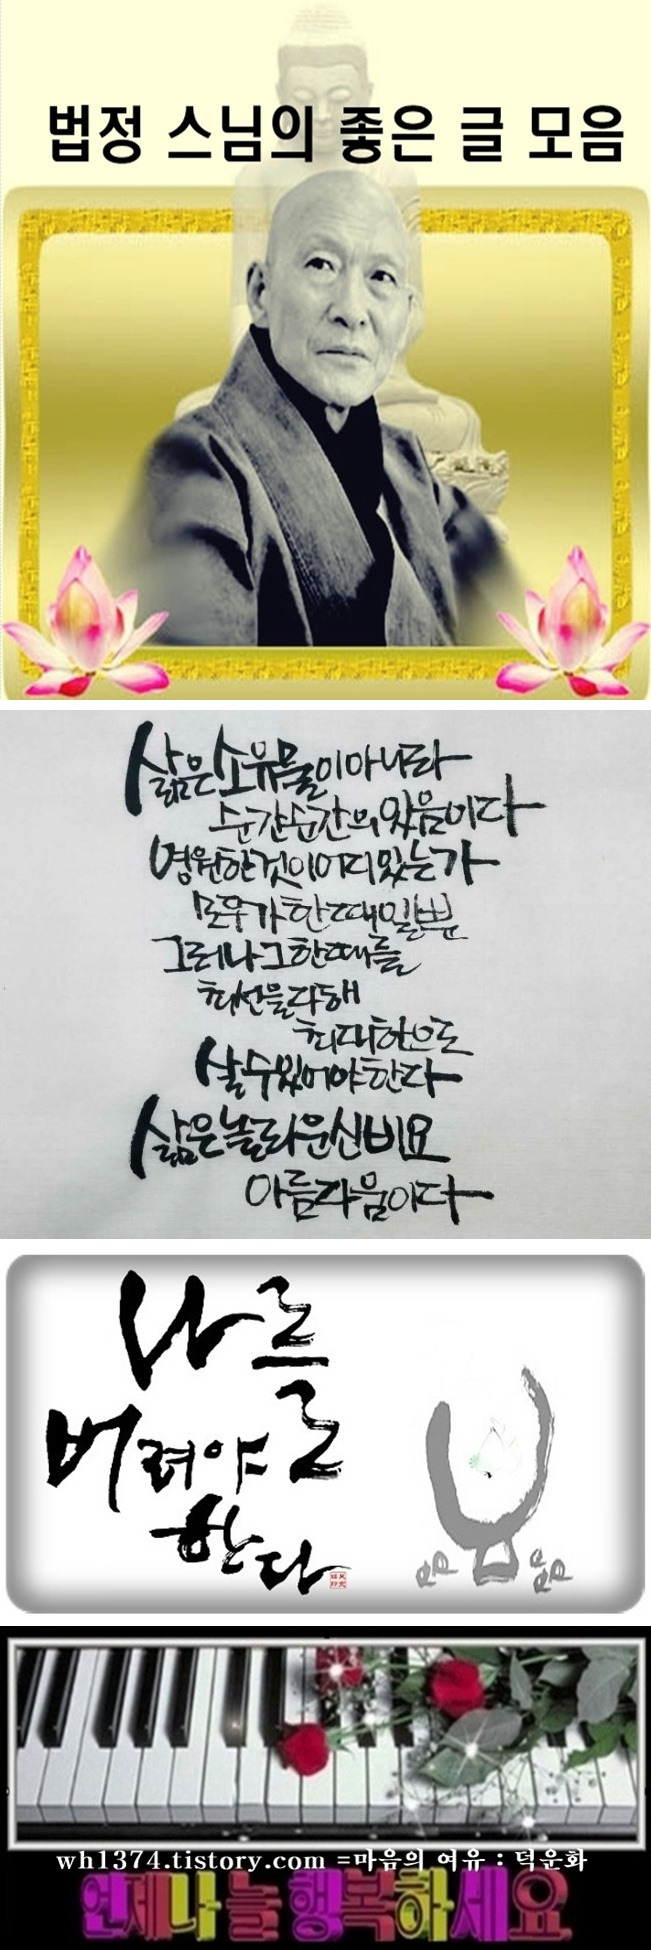 법정 스님의 좋은 글 모음
삶은 소유물이 아니라
순간순간의 있음이다
영원한 것이 어디 있는가
모두가 한때일 뿐
그러나 그 한때를
최선을 다해
최대한으로
살 수 있어야 한다
삶은 놀라운 신비요
아름다움이다
나를
버려야
한다
wh1374.tistory.com =마음의 여유 : 덕운화
언제나 늘 행복하세요